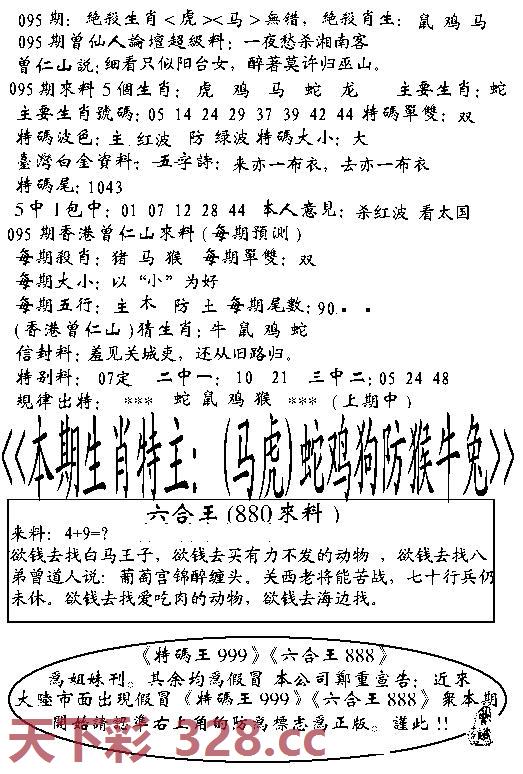 095期: 绝殺生肖<虎><马>無错, 絶殺肖生: 鼠 鸡 马
095期曾仙人論壇超級料: 一夜愁杀湘南客
曾仁山説: 细看只似阳台女, 醉著莫许归巫山。
095期來料5個生肖: 虎 鸡 马 蛇 龙 主要生肖: 蛇
主要生肖號碼: 05 14 24 29 37 39 42 44 特碼單雙: 双
特碼波色: 主 红波 防 绿波 特碼大小: 大
臺灣白金資料: 五字詩: 来亦一布衣, 去亦一布衣
特碼尾: 1043
5中1包中: 01 07 12 28 44 本人意見: 杀红波 看太国
095期香港曾仁山來料(每期預測)
每期殺肖: 猪 马 猴 每期單雙: 双
每期大小: 以 “小” 为好
每期五行: 主 木 防 土 每期尾數: 90.
(香港曾仁山)猜生肖: 牛 鼠 鸡 蛇
信封料: 羞见关城吏, 还从旧路归。
特别料: 07定 二中一: 10 21 三中二: 05 24 48
規律出特: *** 蛇 鼠 鸡 猴 *** (上期中)
《本期生肖特主: (马虎)蛇鸡狗防猴牛兔》
六合王(880來料)
来料: 4+9=?
欲钱去找白马王子, 欲钱去买有力不发的动物 , 欲钱去找八
弟曾道人说: 葡萄宫锦醉缠头。关西老将能苦战, 七十行兵仍
未休。欲钱去找爱吃肉的动物, 欲钱去海边找。
《特碼王999》《六合王888》
爲姐妹刊。其余均爲假冒 本公司鄭重宣告: 近來
大陸市面出現假冒《特碼王999》《六合王888》衆本期
開始請認準右上角的防爲標志爲正版。謹此!!
天下彩 328.cc